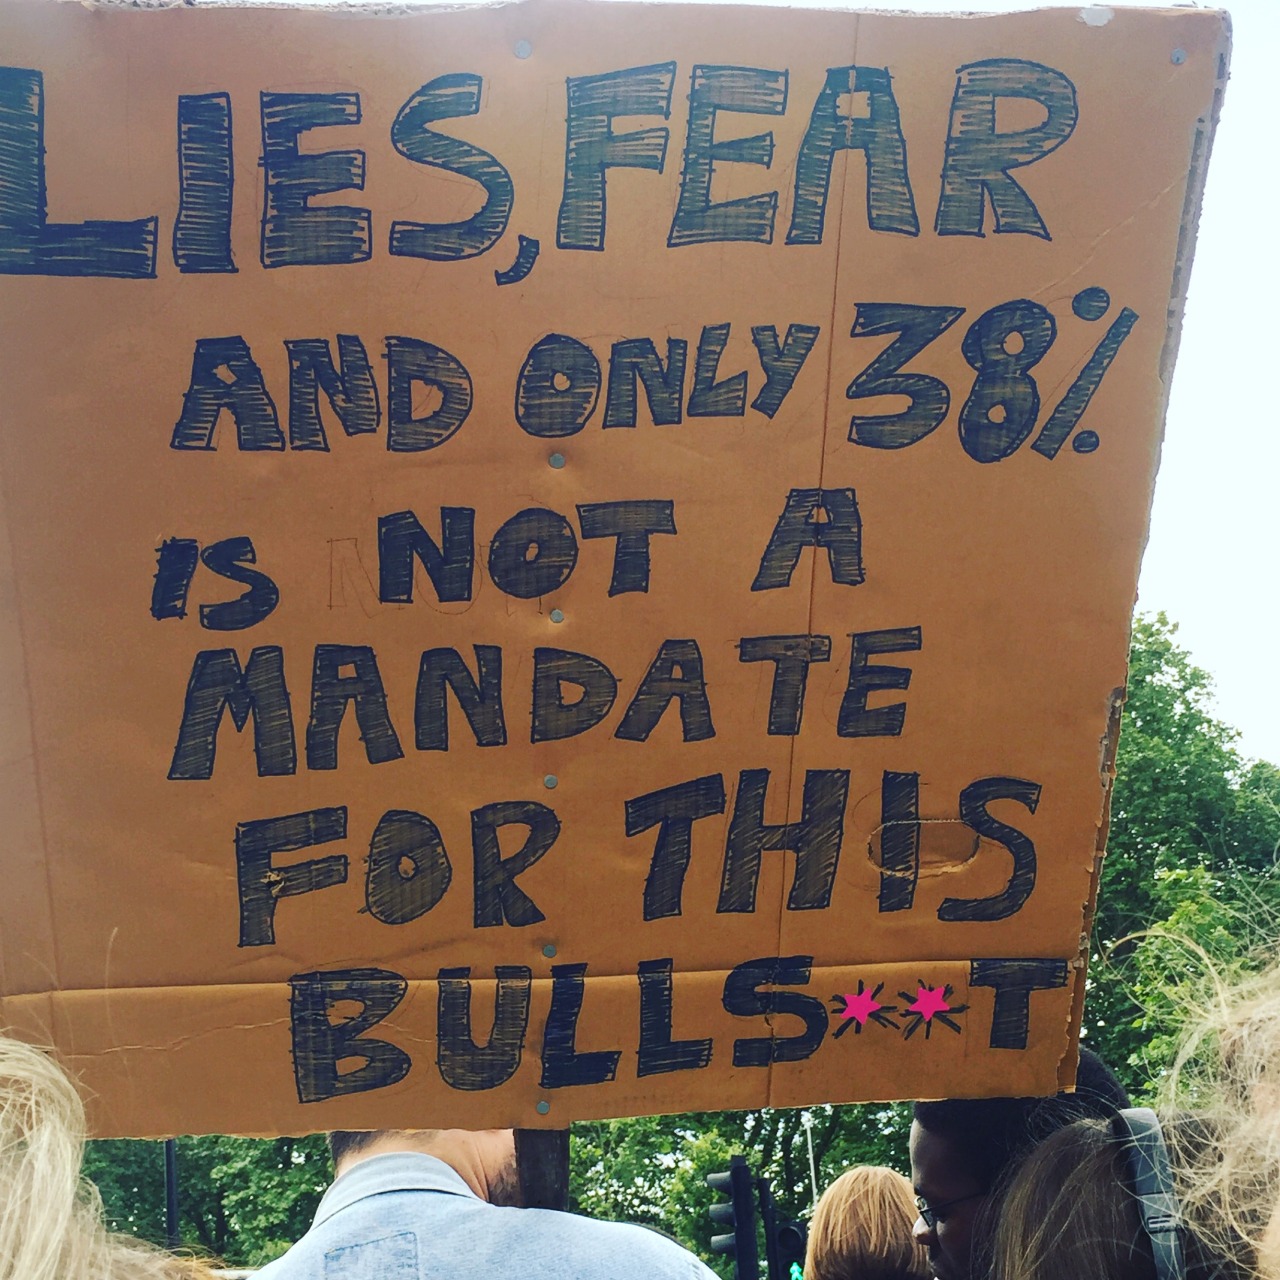 LIES, FEAR
AND ONLY 38%
IS NOT A
MANDATE
FOR THIS
BULLS**T